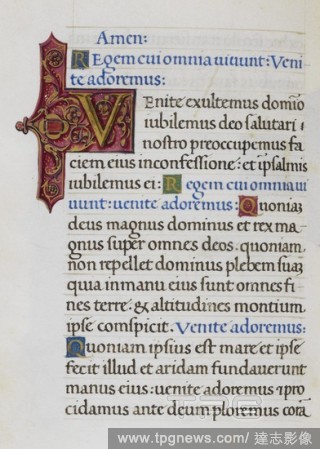 Amen:
Regem cui omnia uiuunt: Veni
te adoremus:
Venite exultemus domio
iubilemus deo salutari
nostro preoccupemus fa
ciem eius inconfessione: et ipsalmis
iubilemus ei: Regem cui omnia ui
uunt: uenite adoremus: Quoniaz
deus magnus dominus et rex ma
gnus super omnes deos. quoniam
non repellet dominus plebem suaz
quia inmanu eius sunt omnes fi
nes terre. & altitudines montium
ipse comspicit. Venite adoremus:
Quoniam ipsius est mare et ipse
fecit illud et aridam fundauerunt
manus eius: uenite adoremus ipro
cidamus ante deum ploremus corā
www.tpgnews.com / 達志影像